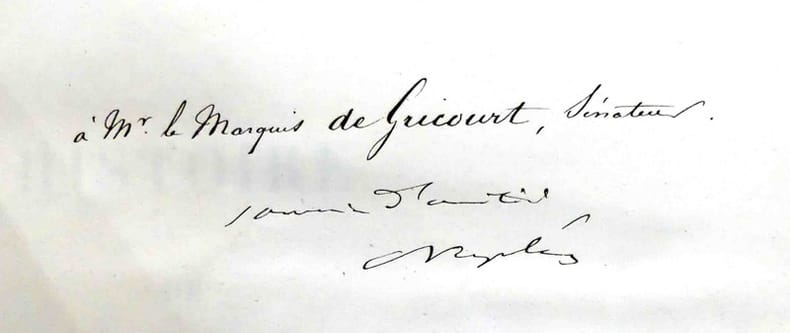 à Mr. le Marquis de Gricourt, Sénateur.
souvenir d'amitié
Napoléon